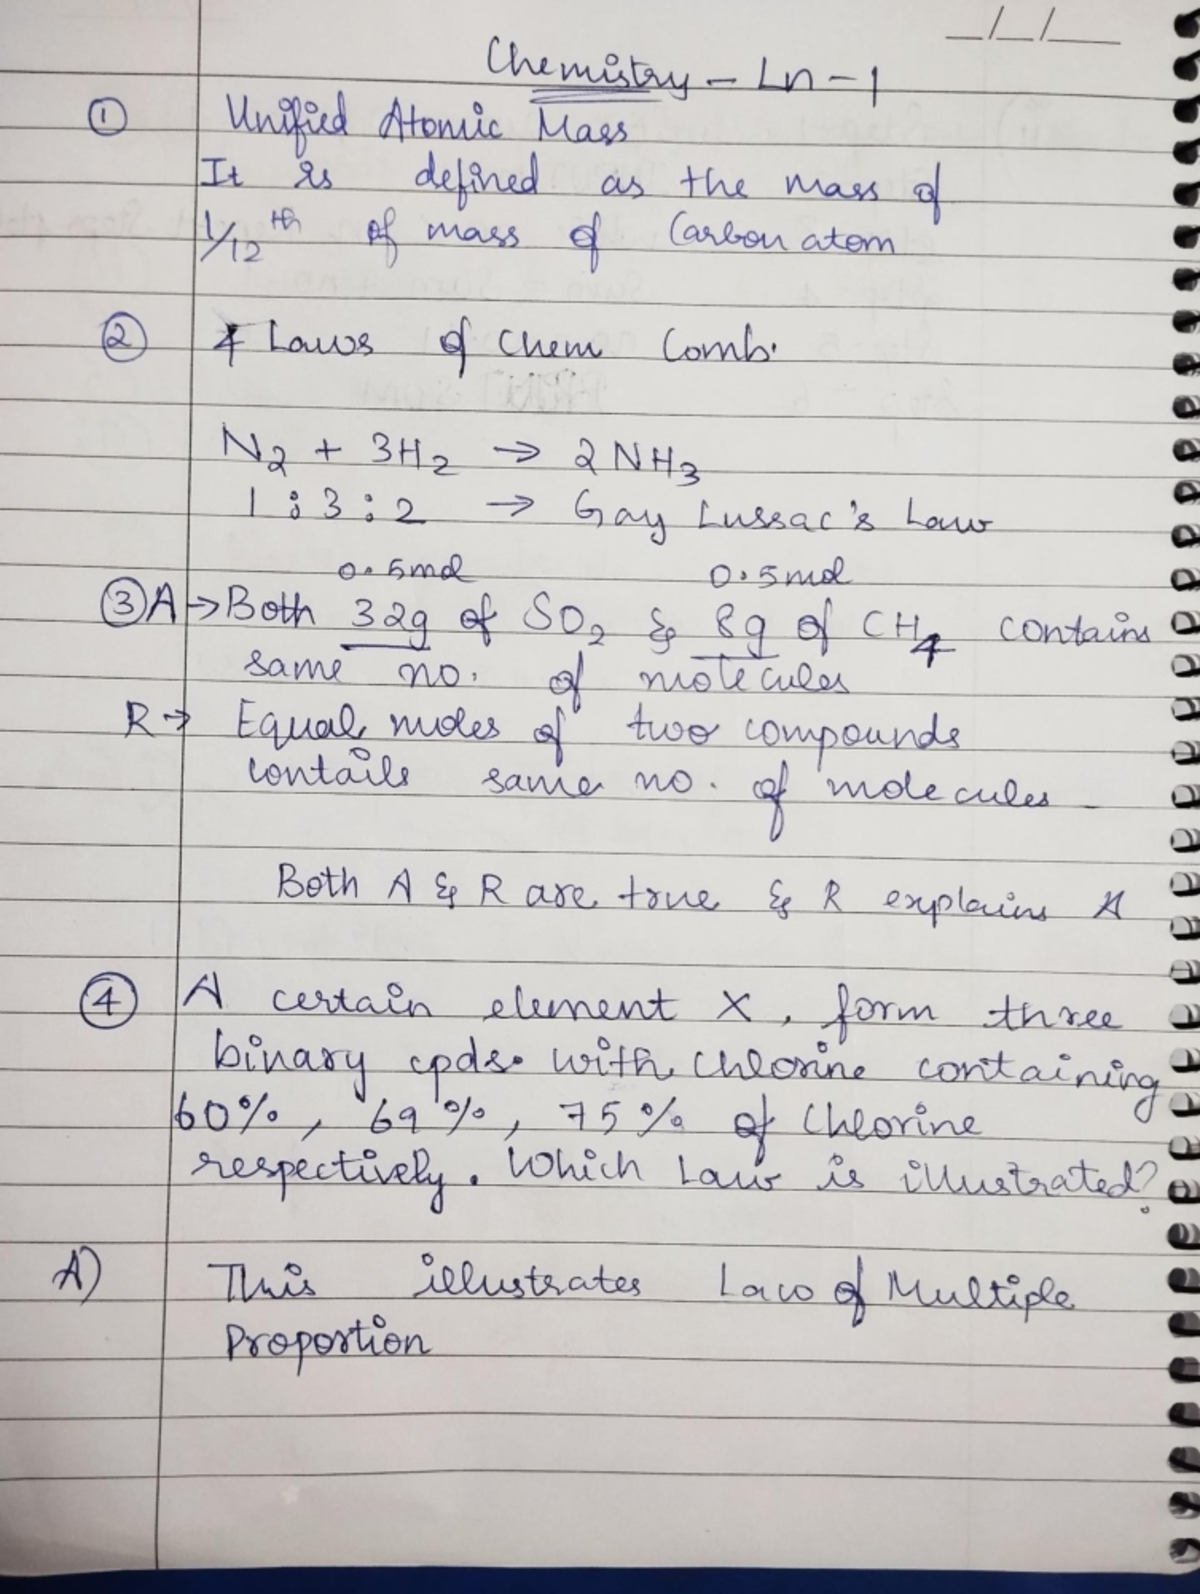 _/_/__
Chemistry - Ln - 1
① Unified Atomic Mass
It is defined as the mass of
1/12th of mass of Carbon atom
② 4 Laws of Chem Comb.
N2 + 3H2 → 2NH3
1 : 3 : 2 → Gay Lussac's Law
0.5mol 0.5mol
③ A → Both 32g of SO2 & 8g of CH4 contains
same no. of molecules
R → Equal moles of two compounds
contails same no. of molecules
Both A & R are true & R explains A
④ A certain element X, form three
binary cpds. with Chlorine containing
60%, 69%, 75% of Chlorine
respectively. Which Law is illustrated?
A) This illustrates Law of Multiple
Proportion